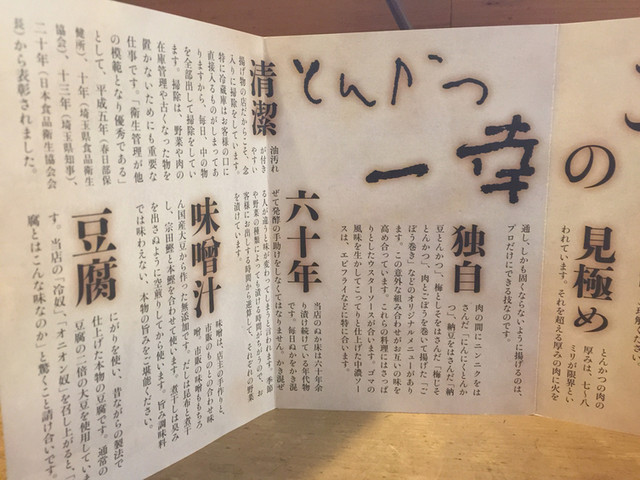 とんかつ
一幸
の
見極め
とんかつの肉の
厚みは、七〜八
ミリが限界とい
われています。それを超える厚みの肉に火を
通し、しかも固くならないように揚げるのは、
プロだけにできる技なのです。
独自
肉の間にニンニクをは
さんだ「にんにくとんか
つ」、納豆をはさんだ「納
豆とんかつ」、梅としそをはさんだ「梅じそ
とんかつ」、肉とごぼうを巻いて揚げた「ご
ぼう巻き」などのオリジナルメニューがあり
ます。この意外な組み合わせがお互いの味を
高め合っています。これらの料理にはさっぱ
りとしたウスターソースが合います。ゴマの
風味を生かしてこってりと仕上げた中濃ソー
スは、エビフライなどに特に合います。
六十年
当店のぬか床は六十年余
り漬け続けている年代物
です。毎日ぬかをかき混
ぜて発酵の手助けをしなくてはなりません。かき混ぜ
る人が違うと味が変わってしまうとも言われます。季節
や野菜の種類によっても漬ける時間がちがうので、お
客様にお出しする時間から逆算して、それぞれの野菜
を漬けています。
清潔
油汚れ
が付き
やすい
揚げ物の店だからこそ、念
入りに掃除をしています。
特に冷蔵庫はお客様の口に
直接入るものがしまってあ
りますから、毎日、中の物
を全部出して掃除をしてい
ます。掃除は、野菜や肉の
在庫管理や古くなった物を
置かないためにも重要な
仕事です。「衛生管理が他
の模範となり優秀である」
として、平成五年（春日部保
健所）、十年（埼玉県食品衛生
協会）、十三年（埼玉県知事）、
二十年（日本食品衛生協会会
長）から表彰されました。
味噌汁
味噌は、店主の手作りと、
市販の二種の合わせ味
噌。市販の味噌ももちろ
ん国産大豆から作った無添加です。だしは昆布と煮干
し、宗田鰹と本鰹を合わせて使います。煮干しは臭み
を出さぬように空煎りしてから使います。旨み調味料
では味わえない、本物の旨みをご堪能ください。
豆腐
にがりを使い、昔ながらの製法で
仕上げた本物の豆腐です。通常の
豆腐の二倍の大豆を使用していま
す。当店の「冷奴」、「オニオン奴」を召し上がると、「
腐とはこんな味なのか」と驚くこと請け合いです。